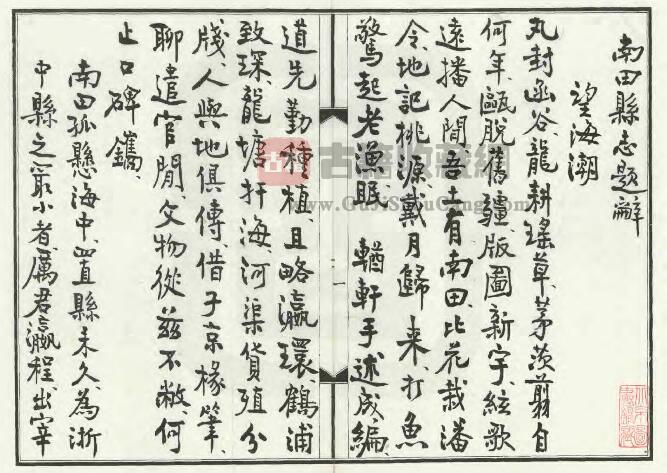 南田縣志題辭
望海潮
丸封函谷、龍耕瑤草、茅茨翦自
何年、甌脫舊疆、版圖新宇、絃歌
遠播人間、吾土有南田、比花栽潘
令、地記桃源、戴月歸來、打魚
驚起老漁眠　輶軒手述成編、
道先勤種植、且略瀛環、鶴浦
致琛、龍塘捍海、河渠貨殖分
牋、人與地俱傳、借子京椽筆、
聊遣官閒、文物從茲不敝、何
止口碑鐫
南田孤懸海中、置縣未久、為浙
中縣之㝡小者、厲君瀛程、出宰
一
古籍收藏網
www.GuJiShouCang.com